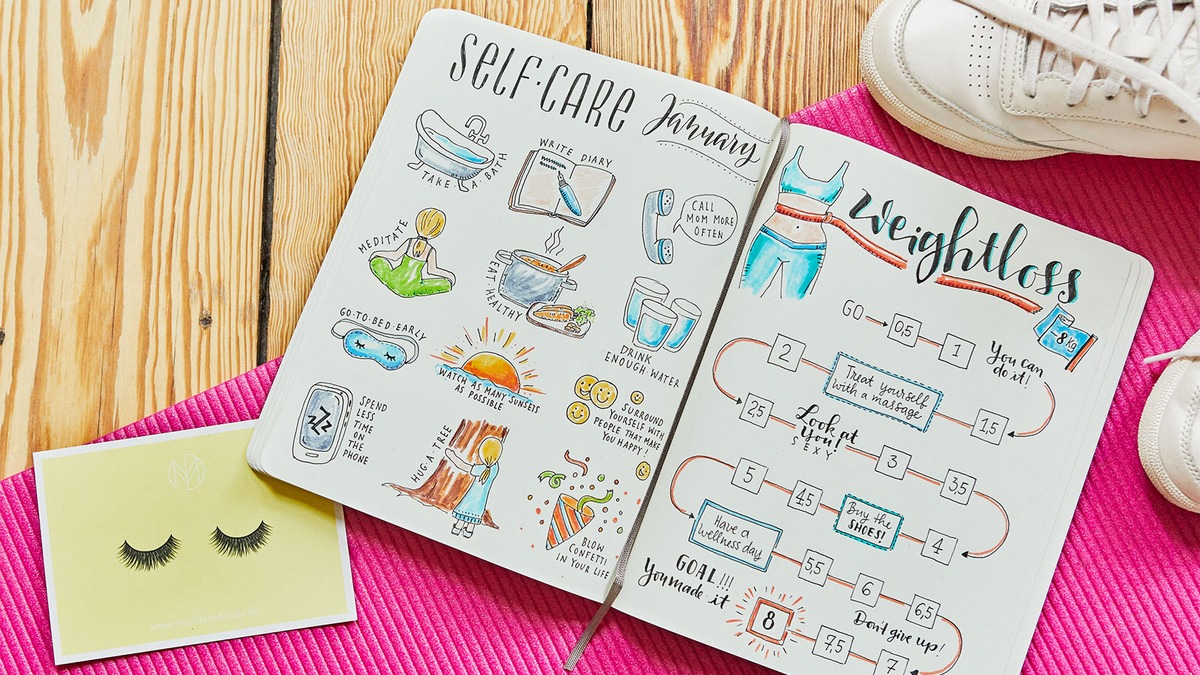 SELF-CARE
January
TAKE A BATH
WRITE DIARY
CALL
MOM MORE
OFTEN
MEDITATE
EAT HEALTHY
GO-TO-BED-EARLY
WATCH AS MANY SUNSETS
AS POSSIBLE
DRINK
ENOUGH WATER
SPEND
LESS
TIME
ON
THE
PHONE
ZZZ
HUG A TREE
SURROUND
YOURSELF WITH
PEOPLE THAT MAKE
YOU HAPPY!
BLOW
CONFETTI
IN YOUR LIFE
Weightloss
-8kg
GO 0,5 1
You can
do it!
2 Treat yourself
with a massage 1,5
2,5 Look at
You!
SEXY 3 3,5
5 4,5 Buy the
SHOES! 4
Have a
wellness day 5,5 6 6,5
GOAL!!!
You made it
Don't give up!
8 7,5 7